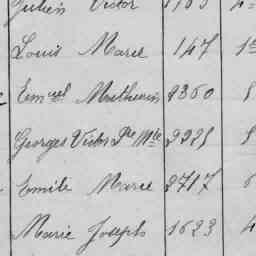 Julien Victor 1763
Louis Marie 147
Emuel Mathurin 2360
Georges Victor Pre Mie 2221
Emile Marie 2717
Marie Joseph 1623 4